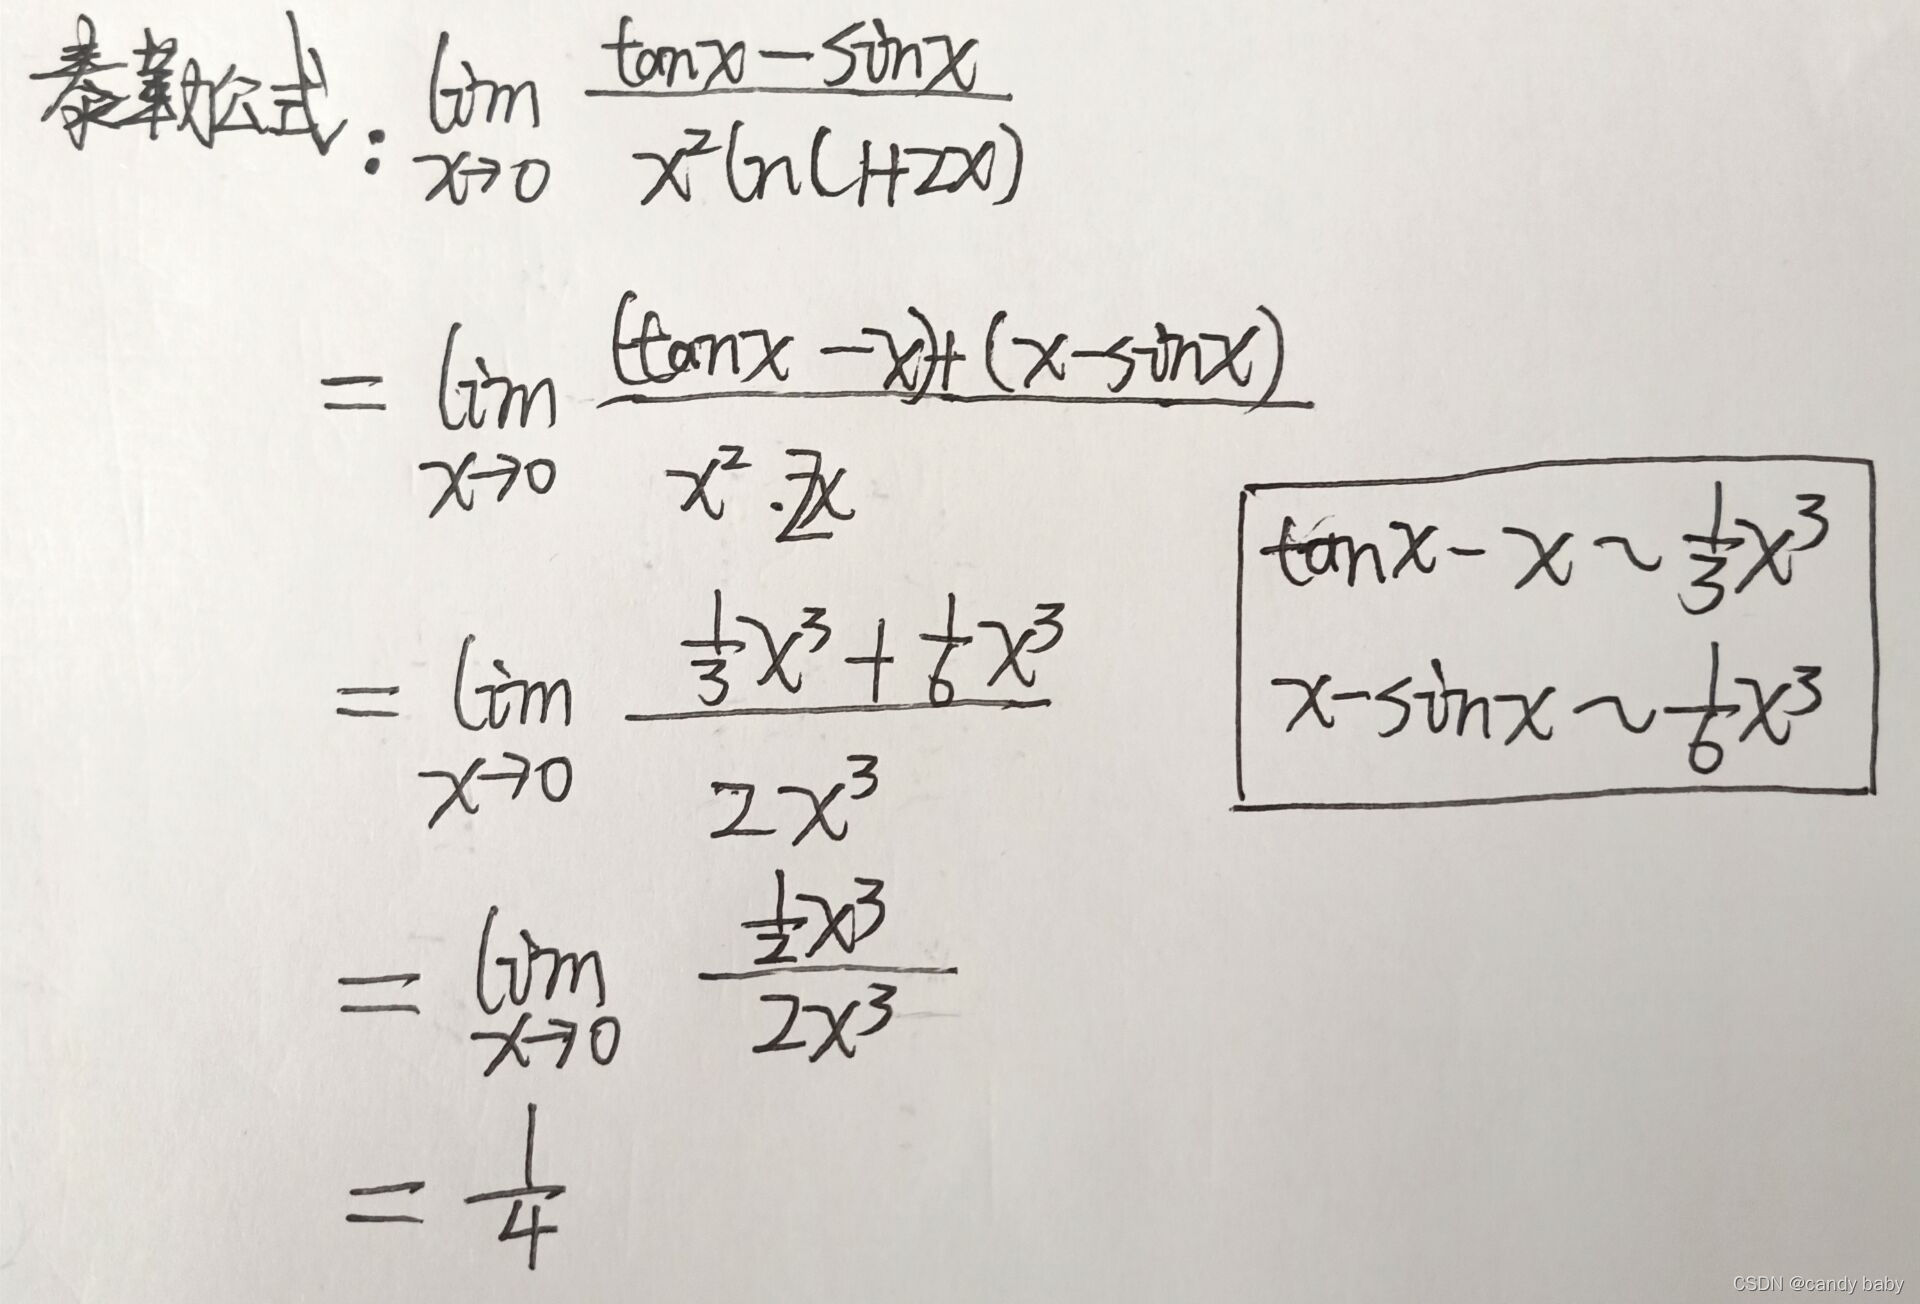 泰勒公式: lim x→0 (tanx − sinx) / (x² ln(1+2x))
= lim x→0 ((tanx − x) + (x − sinx)) / (x² · 2x)
tanx − x ~ 1/3 x³
x − sinx ~ 1/6 x³
= lim x→0 (1/3 x³ + 1/6 x³) / (2x³)
= lim x→0 (1/2 x³) / (2x³)
= 1/4
CSDN @candy baby